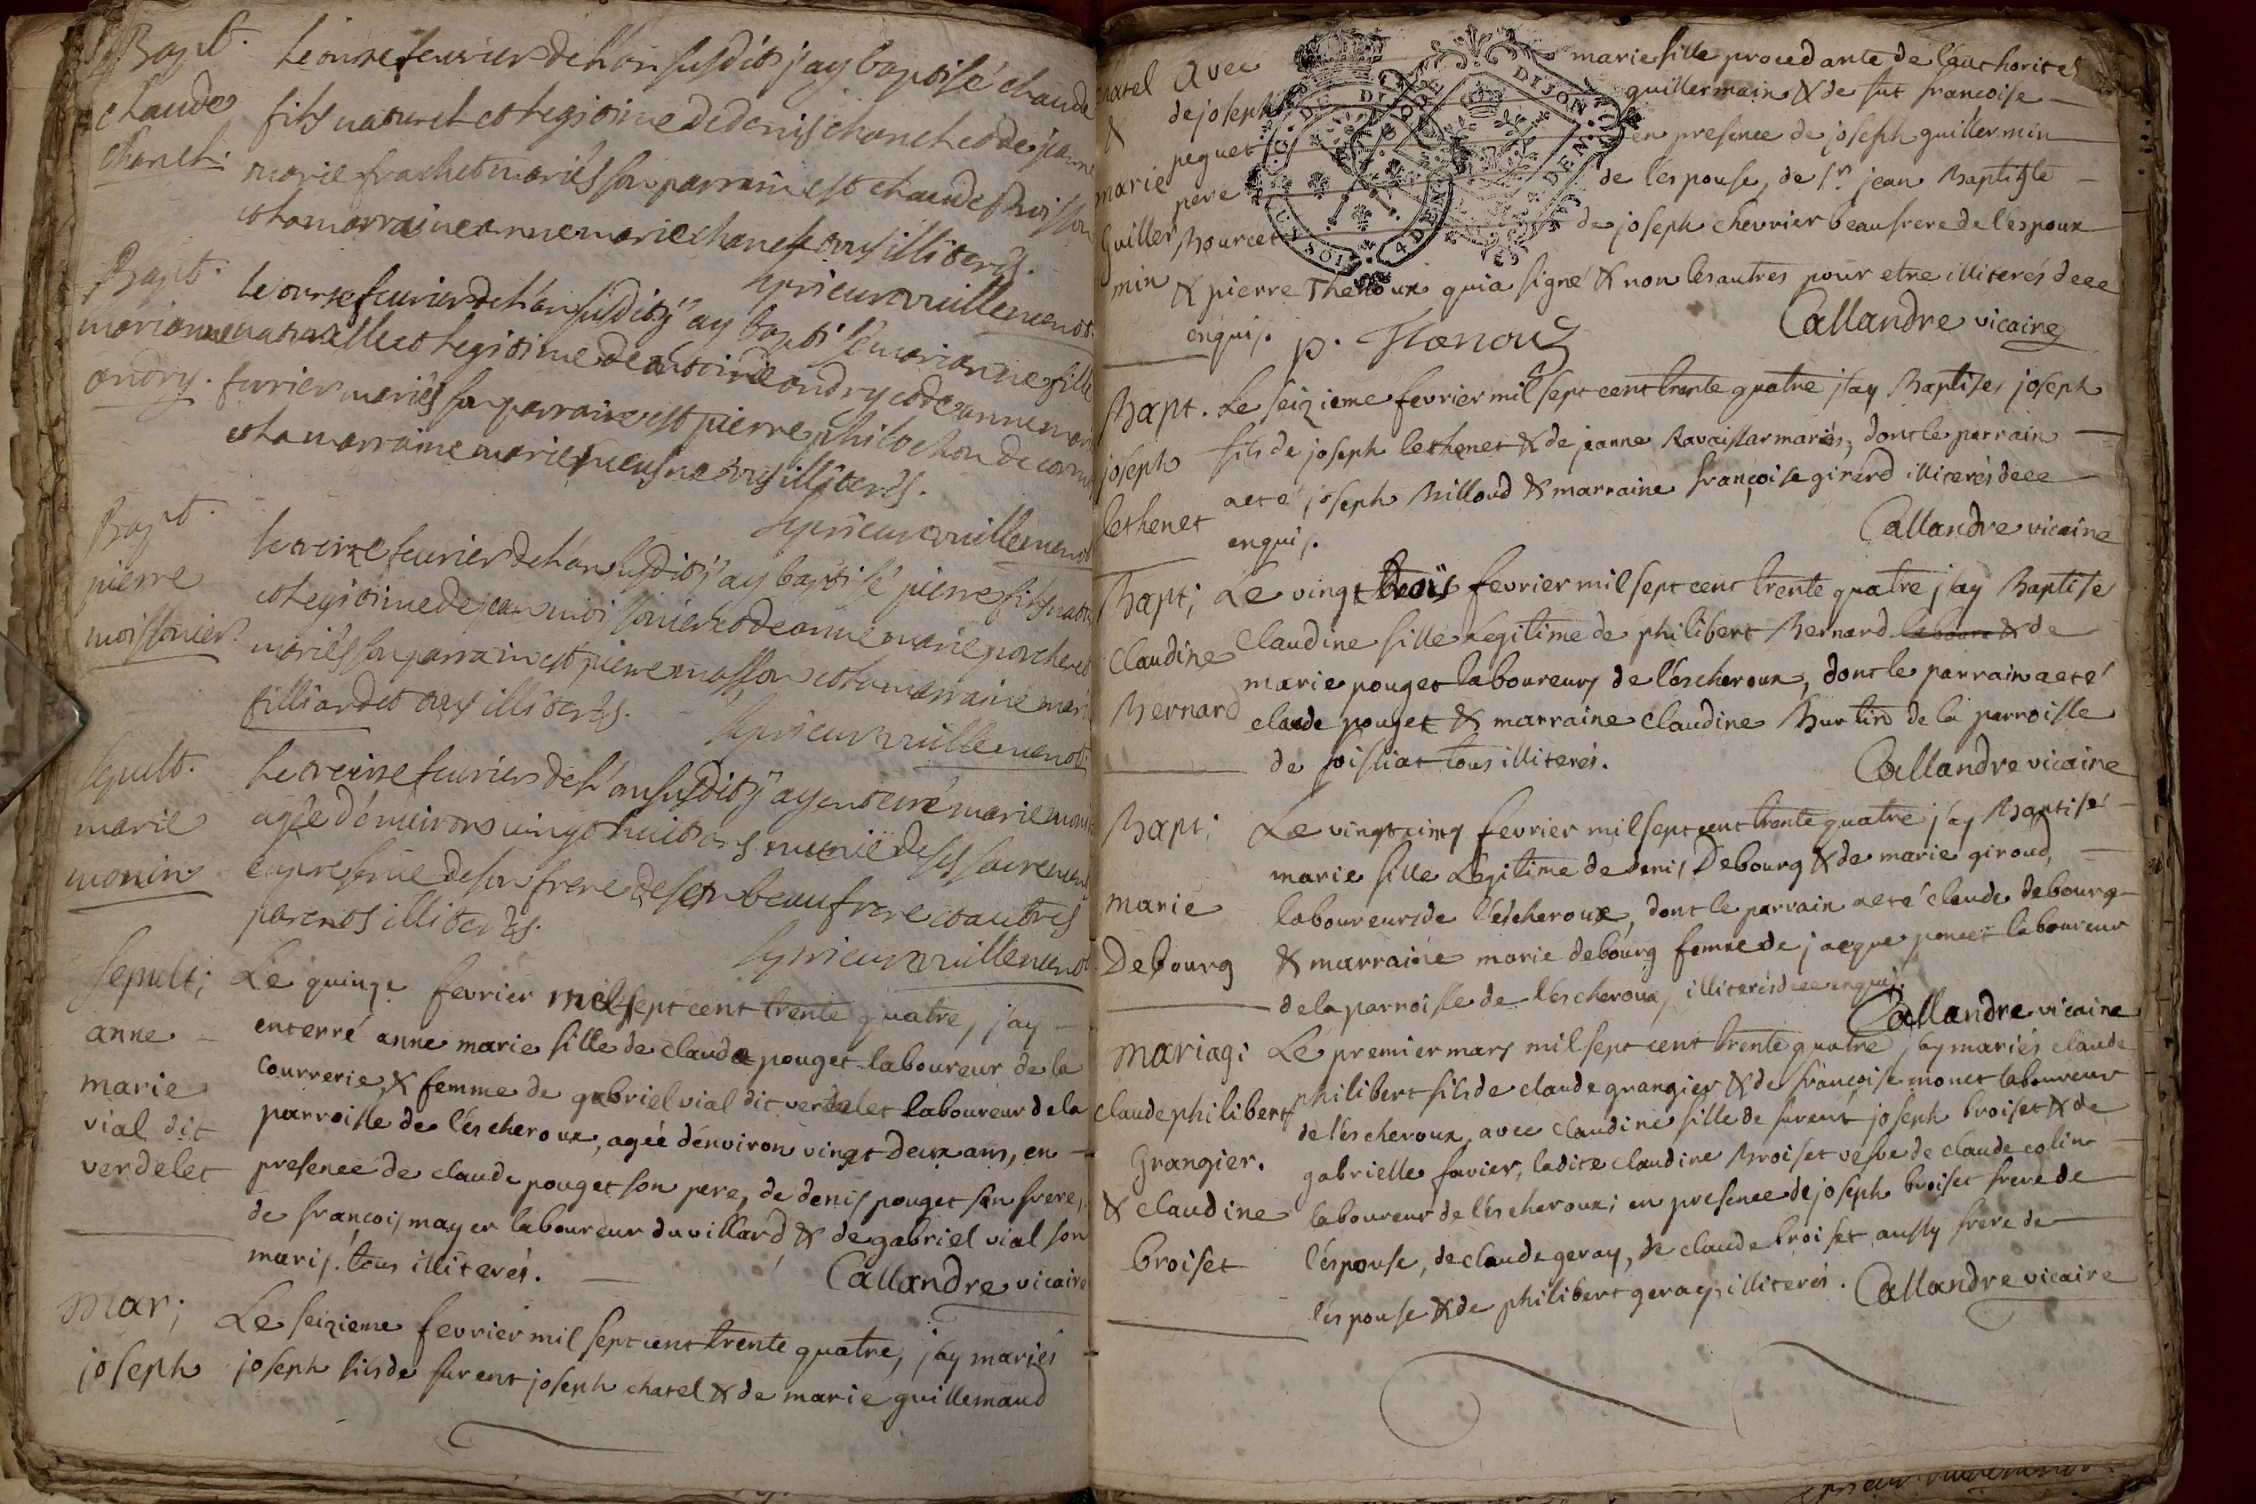 Bapt.
claude
chanel.
Le onze feuvrier de l'an susdit j'ay baptisé claude
fils naturel et legitime de denis chanel et de jeanne
marie frachet mariés son parrain est claude
et la marraine anne marie chanel tous illiterés.
vuillemenot
Bapt.
marianne
andry.
Le onze feuvrier de l'an susdit j'ay baptisé marianne fille
naturelle et legitime de antoine andry et de anne marie
furrier mariés son parrain est pierre philochon de
et la marraine marie tous illiterés.
vuillemenot
Bapt.
pierre
moissonier.
Le treize feuvrier de l'an susdit j'ay baptisé pierre fils
et legitime de jean moissonier et de anne marie porcheret
mariés son parrain est pierre masson et la marraine marie
filliardet tous illiterés.
vuillemenot
sepult.
marie
monin
Le treize feuvrier de l'an susdit j'ay enterré marie monin
agée d'environs vingt huit ans munie de ses sacremens
en presence de son frere de son beaufrere et autres
parents illiterés.
vuillemenot
sepult;
anne
marie
vial dit
verdelet
Le quinze fevrier mil sept cent trente quatre, j'ay
enterré anne marie fille de claude pouget laboureur de la
courrerie, & femme de gabriel vial dit verdelet laboureur de la
parroisse de l'éscheroux, agée d'environ vingt deux ans, en
presence de claude pouget son pere, de denis pouget son frere,
de françois mayer laboureur du villard & de gabriel vial son
maris. tous illiterés.
Callandre vicaire
mar;
joseph
Le seizieme fevrier mil sept cent trente quatre, j'ay mariés
joseph fils de furent joseph chatel & de marie guillemaud
chatel
&
marie
Guiller
min
Avec marie fille procedante de l'authorité
de joseph guillermain & de fut francoise
peguet en presence de joseph guillermin
pere de l'espouse, de sr. jean Baptiste
Bourcet de joseph chevrier beaufrere de l'espoux
& pierre Thenoux qui a signé & non les autres pour etre illiterés de ce
enquis.
p. Thenoux
Callandre vicaire
Bapt.
joseph
lethenet
Le seizieme fevrier mil sept cent trente quatre j'ay Baptisés joseph
fils de joseph lethenet & de jeanne Ravaissar mariés, dont le parrain
a eté joseph Billoud & marraine françoise girard illiterés de ce
enquis.
Callandre vicaire
Bapt;
Claudine
Bernard
Le vingt trois fevrier mil sept cent trente quatre j'ay Baptisé
Claudine fille Legitime de philibert Bernard labour & de
marie pouget laboureurs de l'éscheroux, dont le parrain a eté
claude pouget & marraine claudine Burtin de la parroisse
de soissiat tous illiterés.
Callandre vicaire
Bapt;
marie
Debourg
Le vingt cinq fevrier mil sept cent trente quatre j'ay Baptisé
marie fille Legitime de denis Debourg & de marie giroud,
laboureurs de l'éscheroux, dont le parrain a eté claude debourg
& marraine marie debourg femme de jacque poncet laboureur
de la parroisse de l'éscheroux, illiterés de ce enquis.
Callandre vicaine
mariage
claude philibert
Grangier.
& claudine
broiset
Le premier mars mil sept cent trente quatre j'ay mariés claude
philibert fils de claude grangier & de francoise monet laboureur
de l'éscheroux, avec claudine fille de furent joseph broiset & de
gabrielle favier, ladite claudine Broiset vefve de claude colin
laboureur de l'éscheroux; en presence de joseph broiset frere de
l'éspouse, de claude geray, de claude broiset aussy frere de
l'espouse & de philibert geray; illiterés.
Callandre vicaire